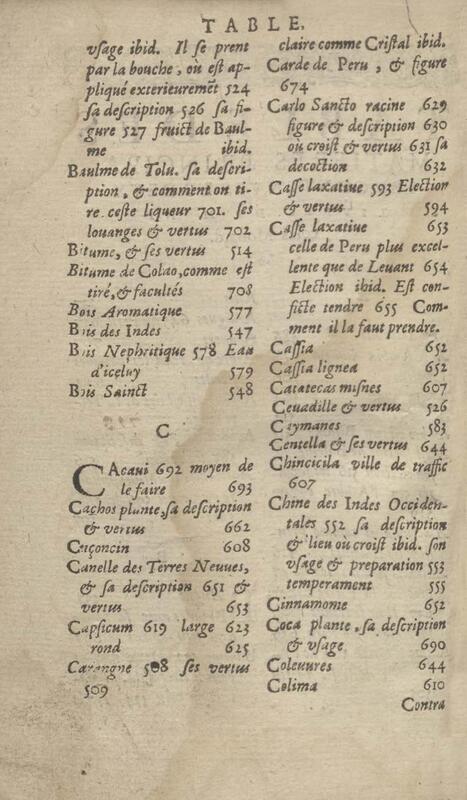 TABLE.
vsage ibid. Il se prent
par la bouche, où est ap-
pliqué exterieuremēt 524
sa description 526 sa fi-
gure 527 fruict de Baul-
me ibid.
Baulme de Tolu. sa descri-
ption, & comment on ti-
re ceste liqueur 701. ses
louanges & vertus 702
Bitume, & ses vertus 514
Bitume de Colao, comme est
tiré, & facultés 708
Bois Aromatique 577
Bois des Indes 547
Bois Nephritique 578 Eau
d'iceluy 579
Bois Sainct 548
C
CAcaui 692 moyen de
le faire 693
Cachos plante, sa description
& vertus 662
Cuçoncin 608
Canelle des Terres Neuues,
& sa description 651 &
vertus 653
Capsicum 619 large 623
rond 625
Carangne 508 ses vertus
509
claire comme Cristal ibid.
Carde de Peru, & figure
674
Carlo Sancto racine 629
figure & description 630
où croist & vertus 631 sa
decoction 632
Casse laxatiue 593 Election
& vertus 594
Casse laxatiue 653
celle de Peru plus excel-
lente que de Leuant 654
Election ibid. Est con-
ficte tendre 655 Com-
ment il la faut prendre.
Cassia 652
Cassia lignea 652
Catatecas misnes 607
Ceuadille & vertus 526
Caymanes 583
Centella & ses vertus 644
Chincicila ville de traffic
607
Chine des Indes Occiden-
tales 552 sa description
& lieu où croist ibid. son
vsage & preparation 553
temperament 555
Cinnamome 652
Coca plante, sa description
& vsage 690
Coleuures 644
Colima 610
Contra